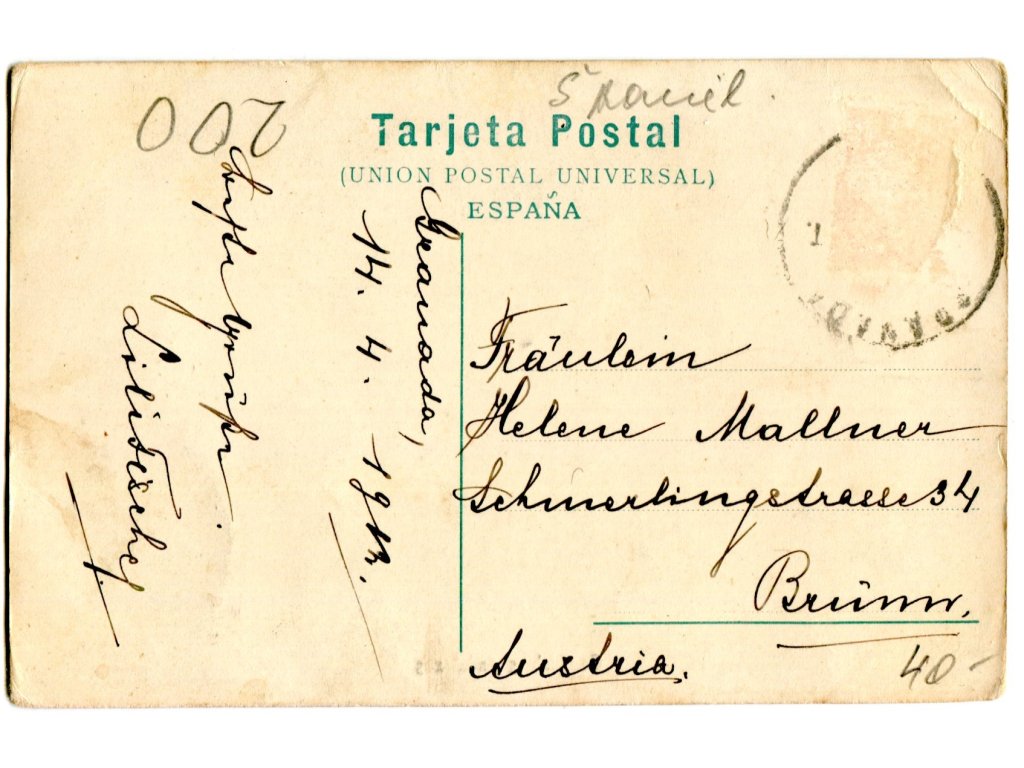 Španěl.
200
Tarjeta Postal
(UNION POSTAL UNIVERSAL)
ESPAÑA
Granada,
14. 4. 1912.
Grüße
Fräulein
Helene Mallner
Schmerlingstrasse 34
Brünn.
Austria.
40-